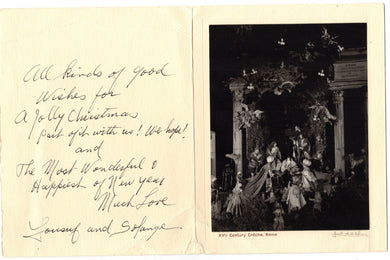 All kinds of good
Wishes for
A Jolly Christmas
part of it with us! We hope!
and
The Most Wonderful &
Happiest of New Year
Much Love
Yousuf and Solange
XVII Century Crèche, Rome